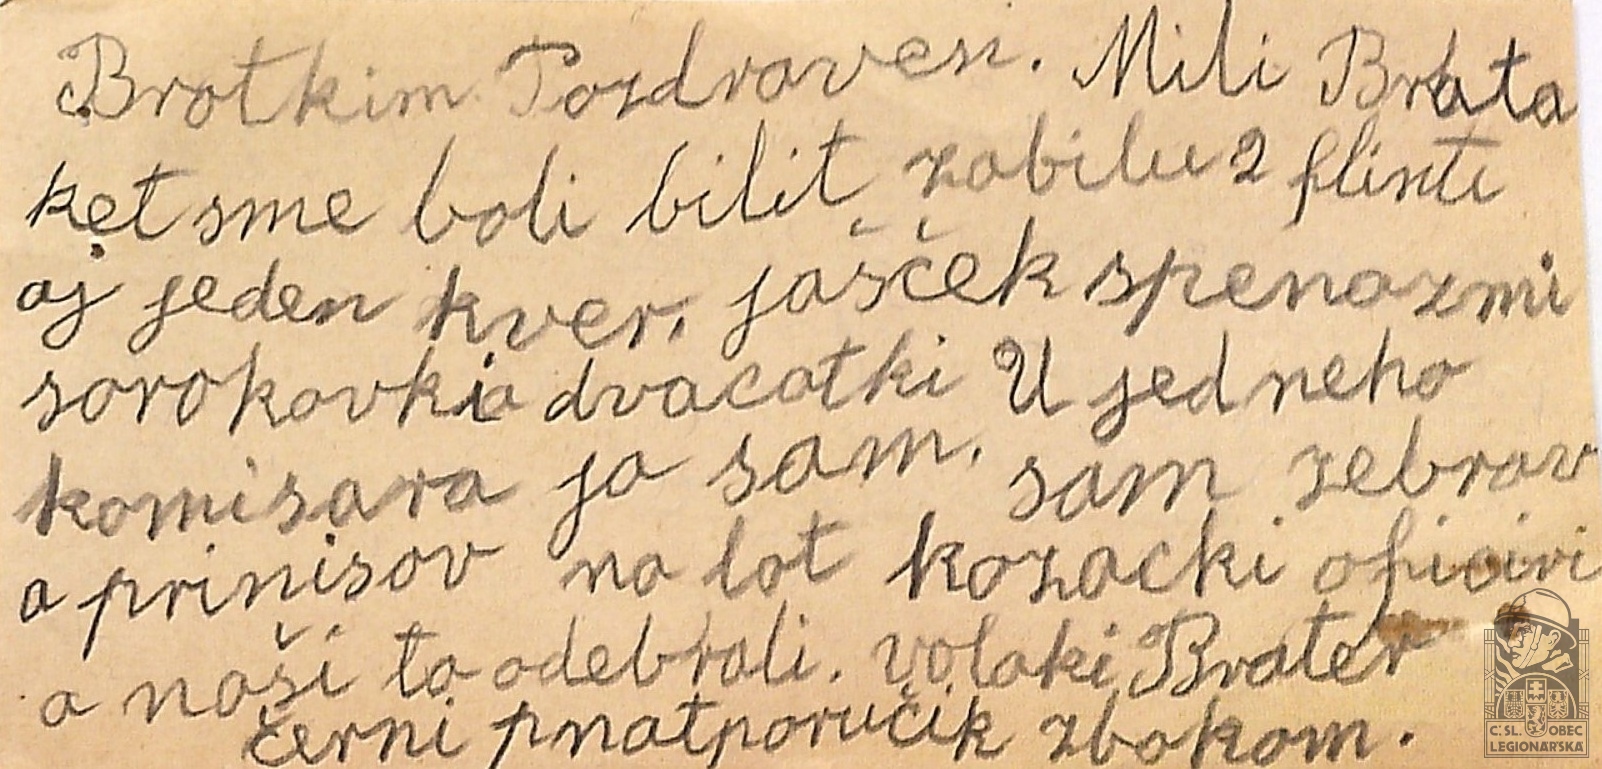 Brotkim Pozdraven. Mili Brata
ket sme boli bilit zobilu 2 flinti
aj jeden kver, jošček spenozmi
sorokovkia dvacatki U jedneho
komisara jo som. som zebrov
a prinisov na lot kozacki oficiri
a noši to odebrali. volaki Brater
černi pnatporučik zbokom.
Č: SL. OBEC
LEGIONÁŘSKÁ